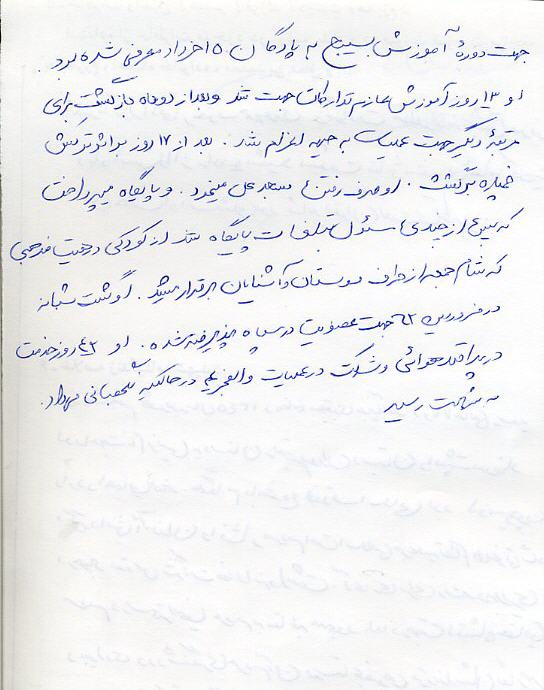 جهت دوره آموزش بسیج به پادگان ۱۵ خرداد معرفی شده بود.
او ۱۳ روز آموزش عازم تدارکات جبهه شد و بعد از دو ماه بازگشت برای
مرتبه دیگر جهت عملیات به جبهه اعزام شد. بعد از ۱۷ روز بر اثر ترکش
خمپاره برگشت. او صرف رفتن مسجد علی مینمود. و پایگاه میپرداخت
که پس از چندی مسئول تبلیغات پایگاه شد از کودکی در جمعیت مذهبی
که شام جمعه از طرف دوستان و آشنایان برقرار میشد. او گشت شبانه
در فروردین ۶۲ جهت عضویت در سپاه پذیرفته شده. او ۴۳ روز خدمت
در پدافند هوائی و شرکت در عملیات والفجر در حالیکه نگهبانی میداد.
به شهادت رسید